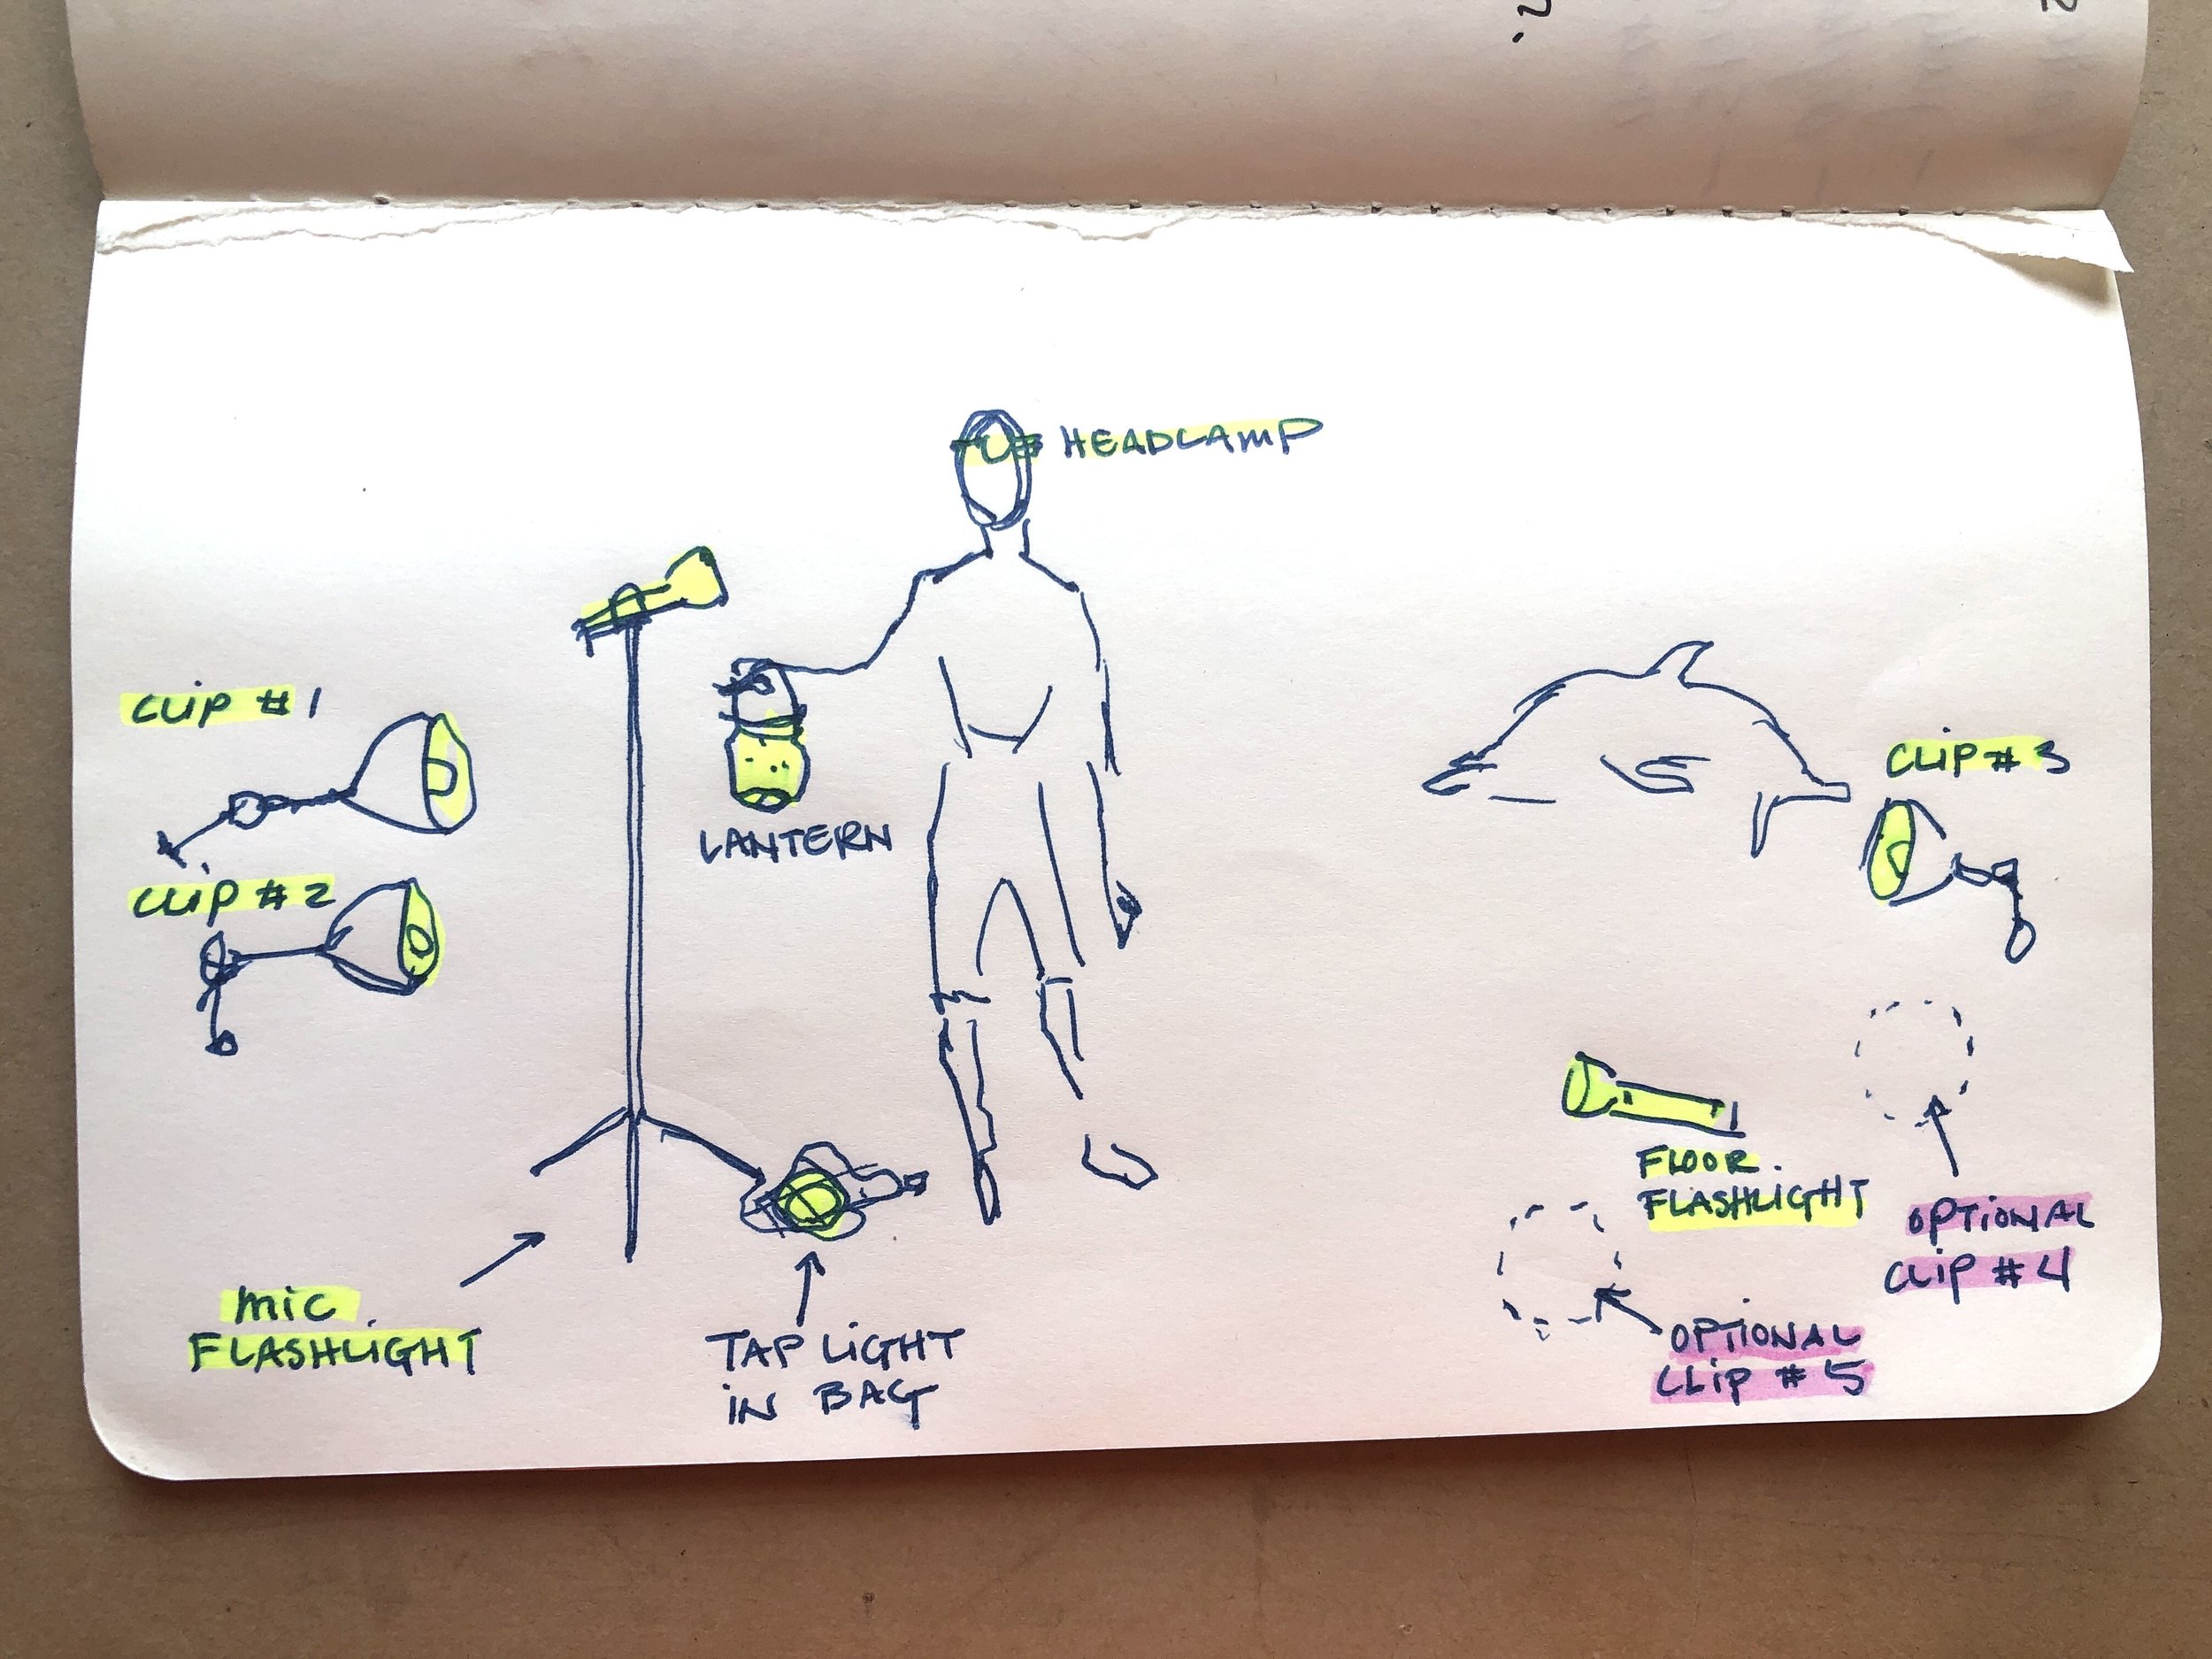 HEADLAMP
CLIP #1
CLIP #2
LANTERN
CLIP #3
MIC
FLASHLIGHT
TAP LIGHT
IN BAG
FLOOR
FLASHLIGHT
OPTIONAL
CLIP #4
OPTIONAL
CLIP #5